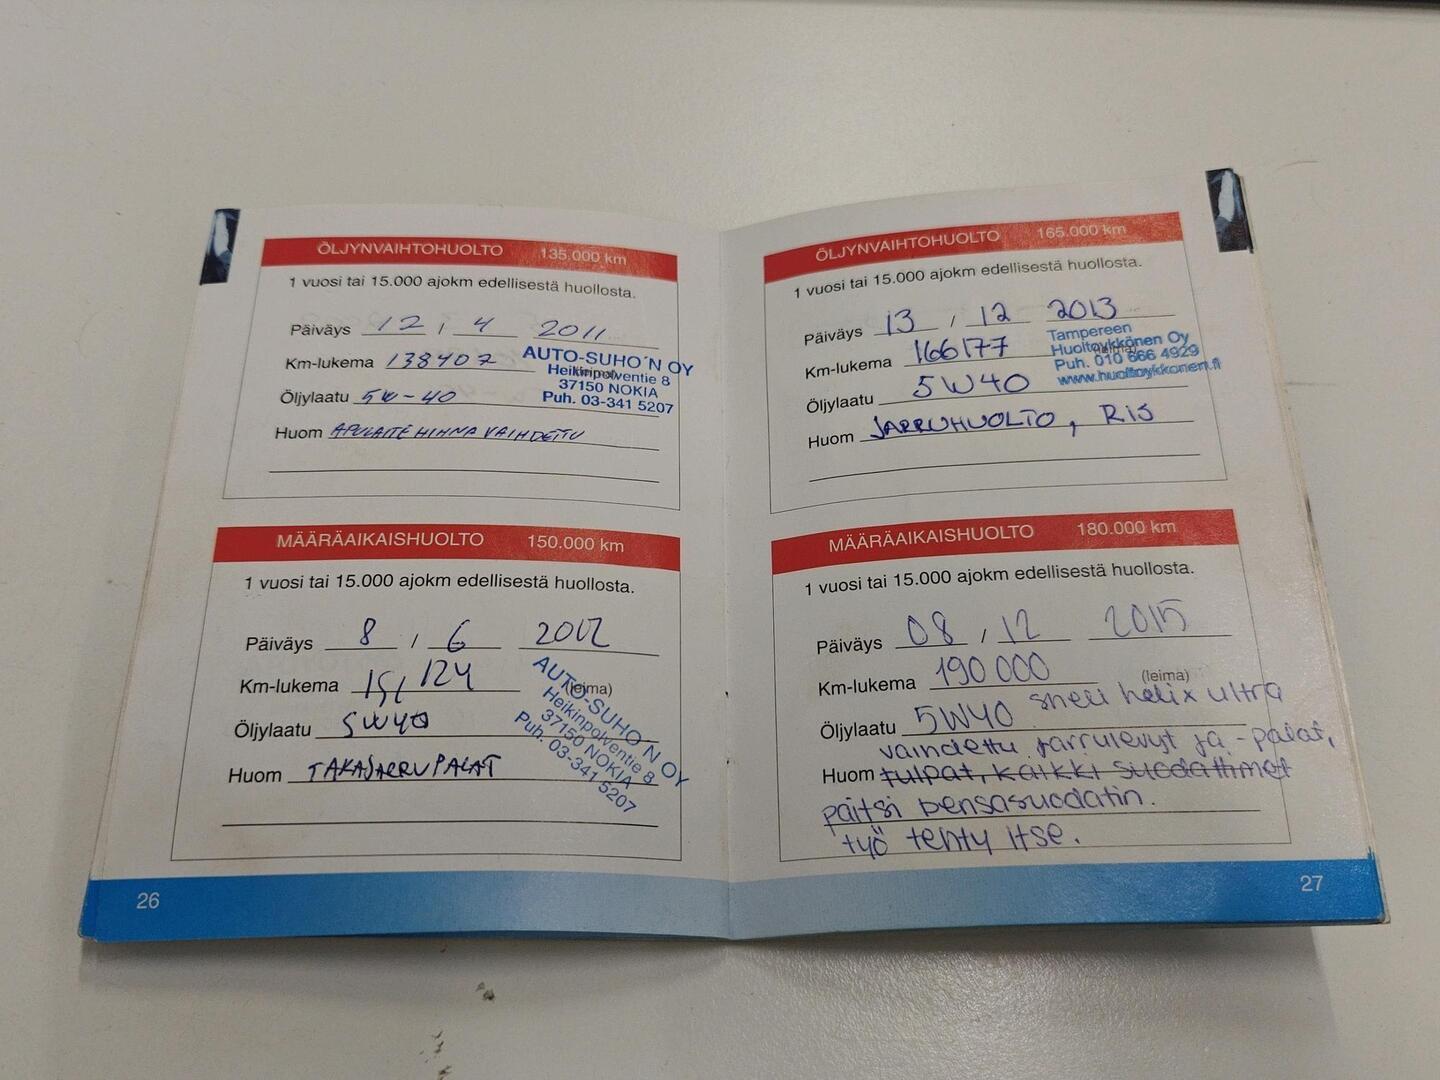 ÖLJYNVAIHTOHUOLTO 135.000 km
1 vuosi tai 15.000 ajokm edellisestä huollosta.
Päiväys 12 / 4 2011
Km-lukema 138407
AUTO-SUHO´N OY
(leima)
Heikinpolventie 8
37150 NOKIA
Puh. 03-341 5207
Öljylaatu 5W-40
Huom APULAITEHIHNA VAIHDETTU
MÄÄRÄAIKAISHUOLTO 150.000 km
1 vuosi tai 15.000 ajokm edellisestä huollosta.
Päiväys 8 / 6 2012
Km-lukema 151 124
(leima)
AUTO-SUHO´N OY
Heikinpolventie 8
37150 NOKIA
Puh. 03-341 5207
Öljylaatu 5W40
Huom TAKAJARRUPALAT
26
ÖLJYNVAIHTOHUOLTO 165.000 km
1 vuosi tai 15.000 ajokm edellisestä huollosta.
Päiväys 13 / 12 2013
Km-lukema 166177
Tampereen
Huoltoykkönen Oy
(leima)
Puh. 010 666 4929
www.huoltoykkonen.fi
Öljylaatu 5W40
Huom JARRUHUOLTO,
MÄÄRÄAIKAISHUOLTO 180.000 km
1 vuosi tai 15.000 ajokm edellisestä huollosta.
Päiväys 08 / 12 2015
Km-lukema 190 000 (leima)
Öljylaatu 5W40 shell helix ultra
vaihdettu jarrulevyt ja -palat,
Huom tulpat, kaikki suodattimet
paitsi bensasuodatin.
työ tehty itse.
27